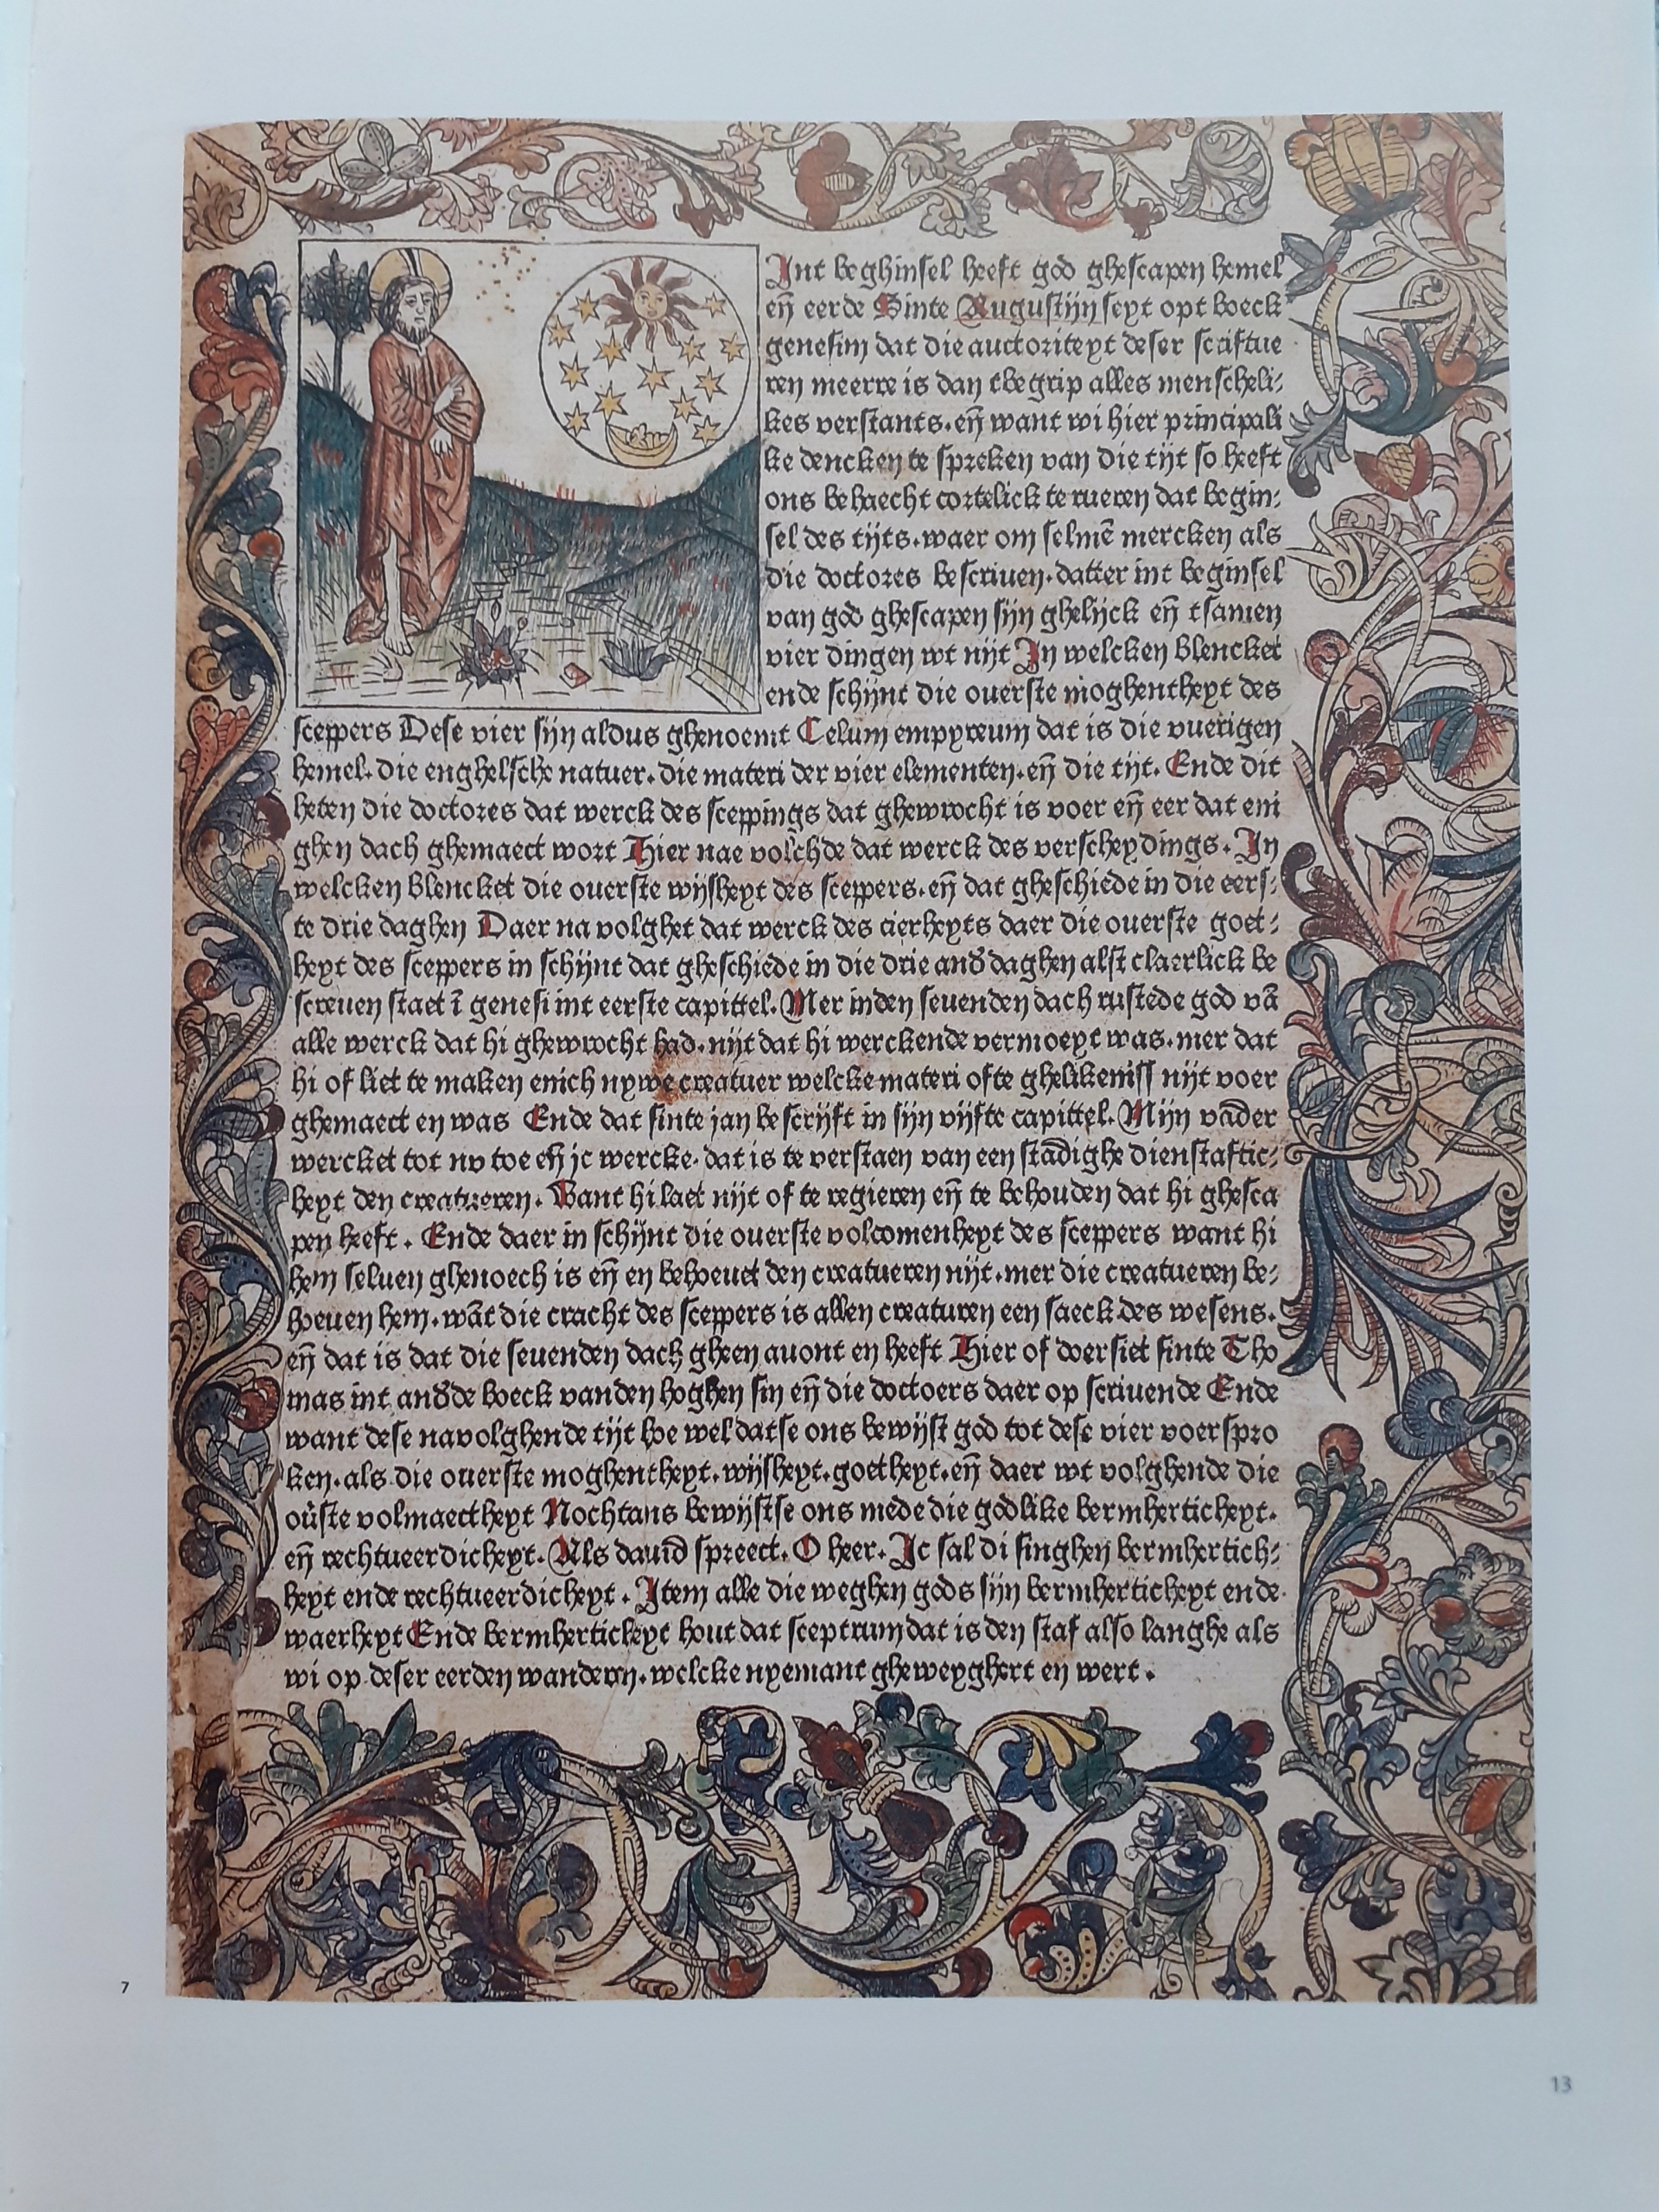 Int beghinsel heeft god ghescapen hemel
en̄ eerde Sinte Augustijn seyt opt boeck
genesim dat die auctoriteyt deser scriftue
ren meerre is dan tbegrip alles menscheli⸗
kes verstants. en̄ want wi hier principali
ke dencken te spreken van die tijt so heeft
ons behaecht cortelick te rueren dat begin⸗
sel des tijts. waer om selmē mercken als
die doctores bescriuen. datter int beginsel
van god ghescapen sijn ghelijck en̄ tsamen
vier dingen wt nijt In welcken blencket
ende schijnt die ouerste moghentheyt des
sceppers Dese vier sijn aldus ghenoemt Celum empyreum dat is die vuerigen
hemel. die enghelsche natuer. die materi der vier elementen. en̄ die tijt. Ende dit
heten die doctores dat werck des sceppings dat ghewrocht is voer en̄ eer dat eni
ghen dach ghemaect wort Hier nae volchde dat werck des verscheydings. In
welcken blencket die ouerste wijsheyt des sceppers. en̄ dat gheschiede in die eers⸗
te drie daghen Daer na volghet dat werck des cierheyts daer die ouerste goet⸗
heyt des sceppers in schijnt dat gheschiede in die drie and̄ daghen alst claerlick be
screuen staet ī genesi int eerste capittel. Mer inden seuenden dach rustede god vā
alle werck dat hi ghewrocht had. nijt dat hi werckende vermoeyt was. mer dat
hi of liet te maken enich nywe creatuer welcke materi ofte ghelikeniss nijt voer
ghemaect en was Ende dat sinte jan bescrijft in sijn vijfte capittel. Mijn vader
wercket tot nv toe en̄ jc wercke. dat is te verstaen van een stādighe dienstaftic⸗
heyt den creatueren. Want hi laet nijt of te regieren en̄ te behouden dat hi ghesca
pen heeft. Ende daer in schijnt die ouerste volcomenheyt des sceppers want hi
hem seluen ghenoech is en̄ en behoeuet den creatueren nijt. mer die creatueren be⸗
hoeuen hem. wāt die cracht des sceppers is allen creaturen een saeck des wesens.
en̄ dat is dat die seuenden dach gheen auont en heeft Hier of doersiet sinte Tho
mas int and̄de boeck vanden hoghen sin en̄ die doctoers daer op scriuende Ende
want dese navolghende tijt hoe wel datse ons bewijst god tot dese vier voerspro
ken. als die ouerste moghentheyt. wijsheyt. goetheyt. en̄ daer wt volghende die
oūste volmaectheyt Nochtans bewijstse ons mede die godlike bermherticheyt.
en̄ rechtueerdicheyt. Als dauid spreect. O heer. Ic sal di singhen bermhertich⸗
heyt ende rechtueerdicheyt. Item alle die weghen gods sijn bermherticheyt ende
waerheyt Ende bermherticheyt hout dat sceptrum dat is den staf also langhe als
wi op deser eerden wanderen. welcke nyemant gheweyghert en wert.
7
13